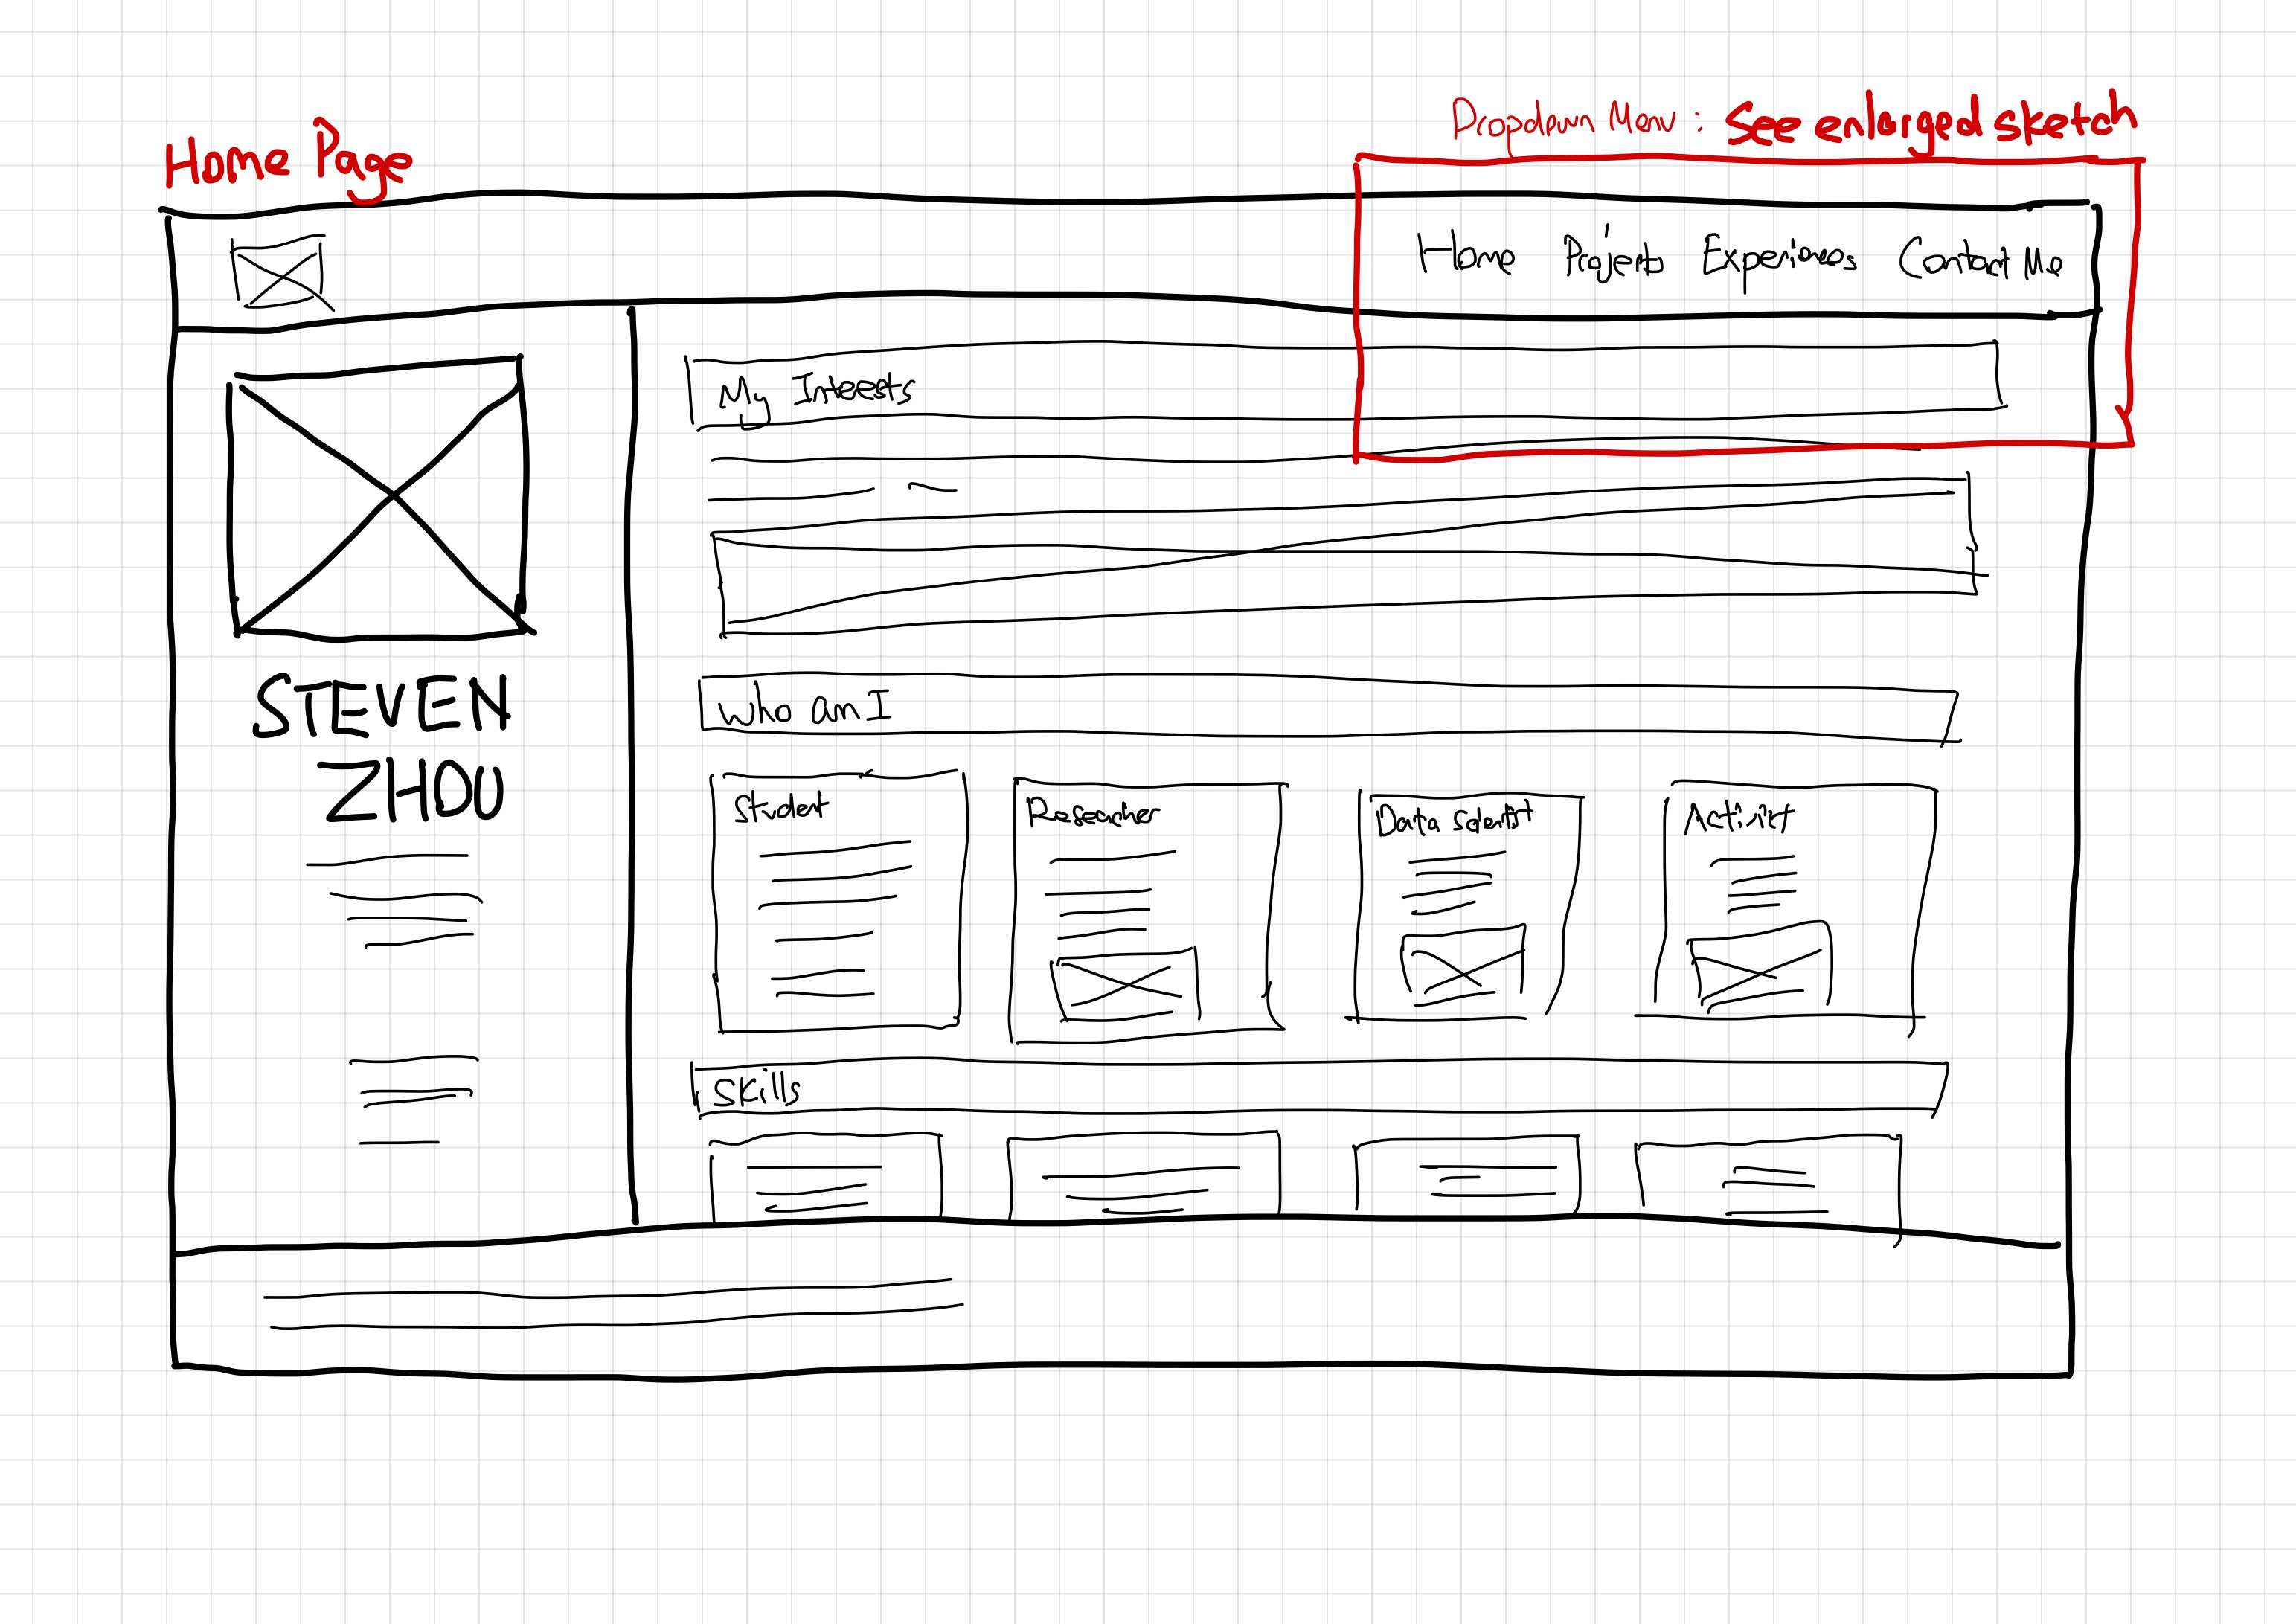 Home Page
Dropdown Menu : See enlarged sketch
Home Projects Experiences Contact Me
My Interests
STEVEN
ZHOU
Who am I
Student
Researcher
Data Scientist
Activist
Skills